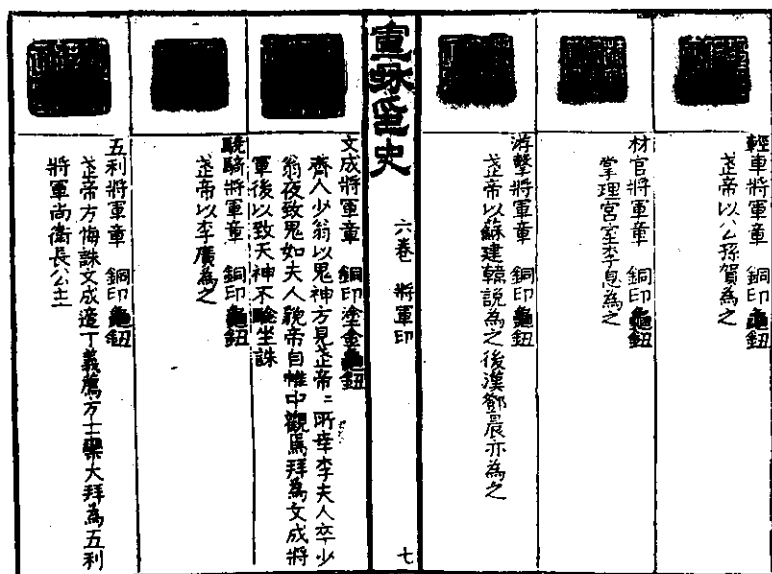 輕車將軍章 銅印龜鈕
武帝以公孫賀為之
材官將軍章 銅印龜鈕
掌理宮室李息為之
游擊將軍章 銅印龜鈕
武帝以蘇建韓說為之後漢鄧晨亦為之
宣和印史
六卷 將軍印
七
文成將軍章 銅印塗金龜鈕
齊人少翁以鬼神方見武帝二所幸李夫人卒少
翁夜致鬼如夫人貌帝自帷中觀焉拜為文成將
軍後以致天神不驗坐誅
驍騎將軍章 銅印龜鈕
武帝以李廣為之
五利將軍章 銅印龜鈕
武帝方悔誅文成適丁義薦方士欒大拜為五利
將軍尚衛長公主